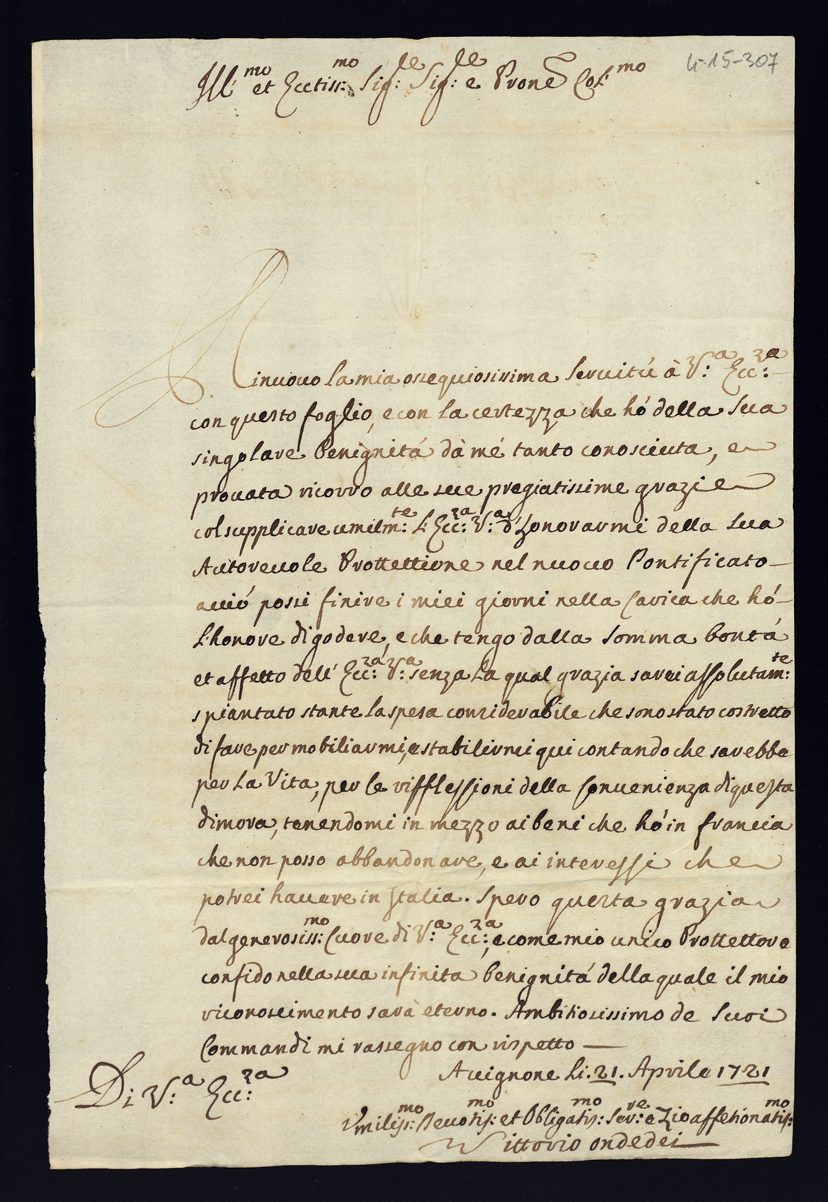 4-15-307
Ill.mo et Ecctiss:mo Sig:le Sig:le e Prone Col.mo
Rinuovo la mia ossequiosissima Servitú à V:a Ecc:za
con questo foglio, e con la certezza che hó della Sua
singolare benignitá dà mé tanto conosciuta, e
provata ricorro alle sue pregiatissime grazie
col supplicare umilm:te L'Ecc:za V:a d'honorarmi della Sua
Autorevole Prottettione nel nuovo Pontificato
acció possi finire i miei giorni nella Carica che hó
L'honore di godere, e che tengo dalla somma bontá
et affetto dell' Ecc:za V:a senza La qual grazia sarei assolutam:te
spiantato stante la spesa considerabile che sono stato costretto
di fare per mobiliarmi, e stabilirmi qui contando che sarebbe
per La Vita, per le rifflessioni della Convenienza di questa
dimora, tenendomi in mezzo ai beni che hó in francia
che non posso abbandonare, e ai interessi che
potrei havere in Italia. Spero questa grazia
dal generosiss:mo Cuore di V:a Ecc:za, e come mio unico Prottettore
confido nella sua infinita benignitá della quale il mio
riconoscimento sará eterno. Ambitiosissimo de Suoi
Commandi mi rassegno con rispetto
Di V:a Ecc:za
Avignone Li. 21. Aprile 1721
Umiliss:mo Devotis:mo et Obligatis:mo Ser:re e Zio affetionatis:mo
Vittorio ondedei